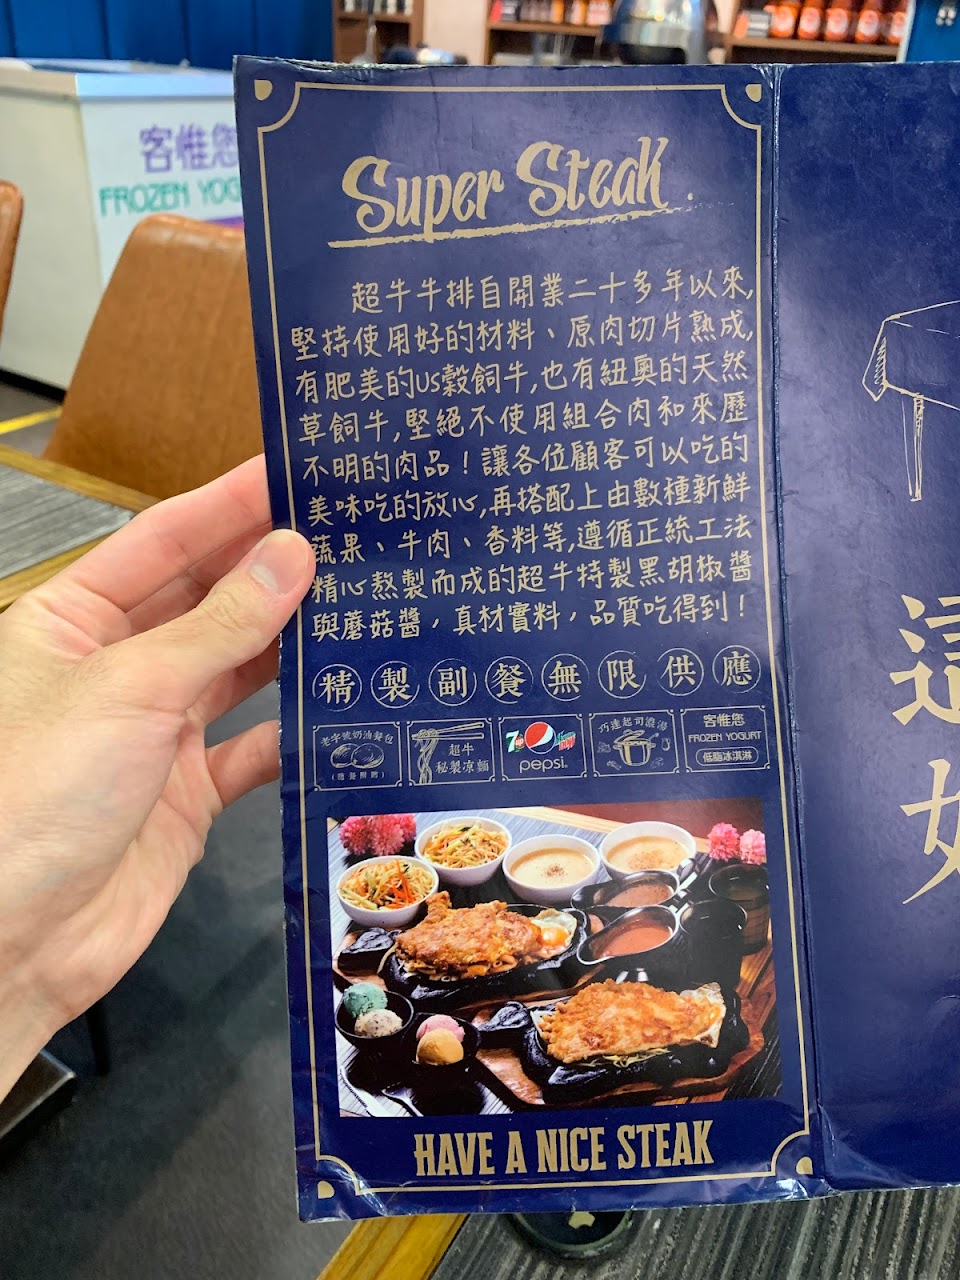 客惟您
FROZEN YOG
Super Steak
超牛牛排自開業二十多年以來,
堅持使用好的材料、原肉切片熟成,
有肥美的US穀飼牛,也有紐奧的天然
草飼牛,堅絕不使用組合肉和來歷
不明的肉品！讓各位顧客可以吃的
美味吃的放心,再搭配上由數種新鮮
蔬果、牛肉、香料等,遵循正統工法
精心熬製而成的超牛特製黑胡椒醬
與蘑菇醬，真材實料，品質吃得到！
精製副餐無限供應
老字號奶油餐包
(隨餐附贈)
超牛
秘製凉麵
7
pepsi
巧達起司濃湯
客惟您
FROZEN YOGURT
低脂冰淇淋
HAVE A NICE STEAK
這